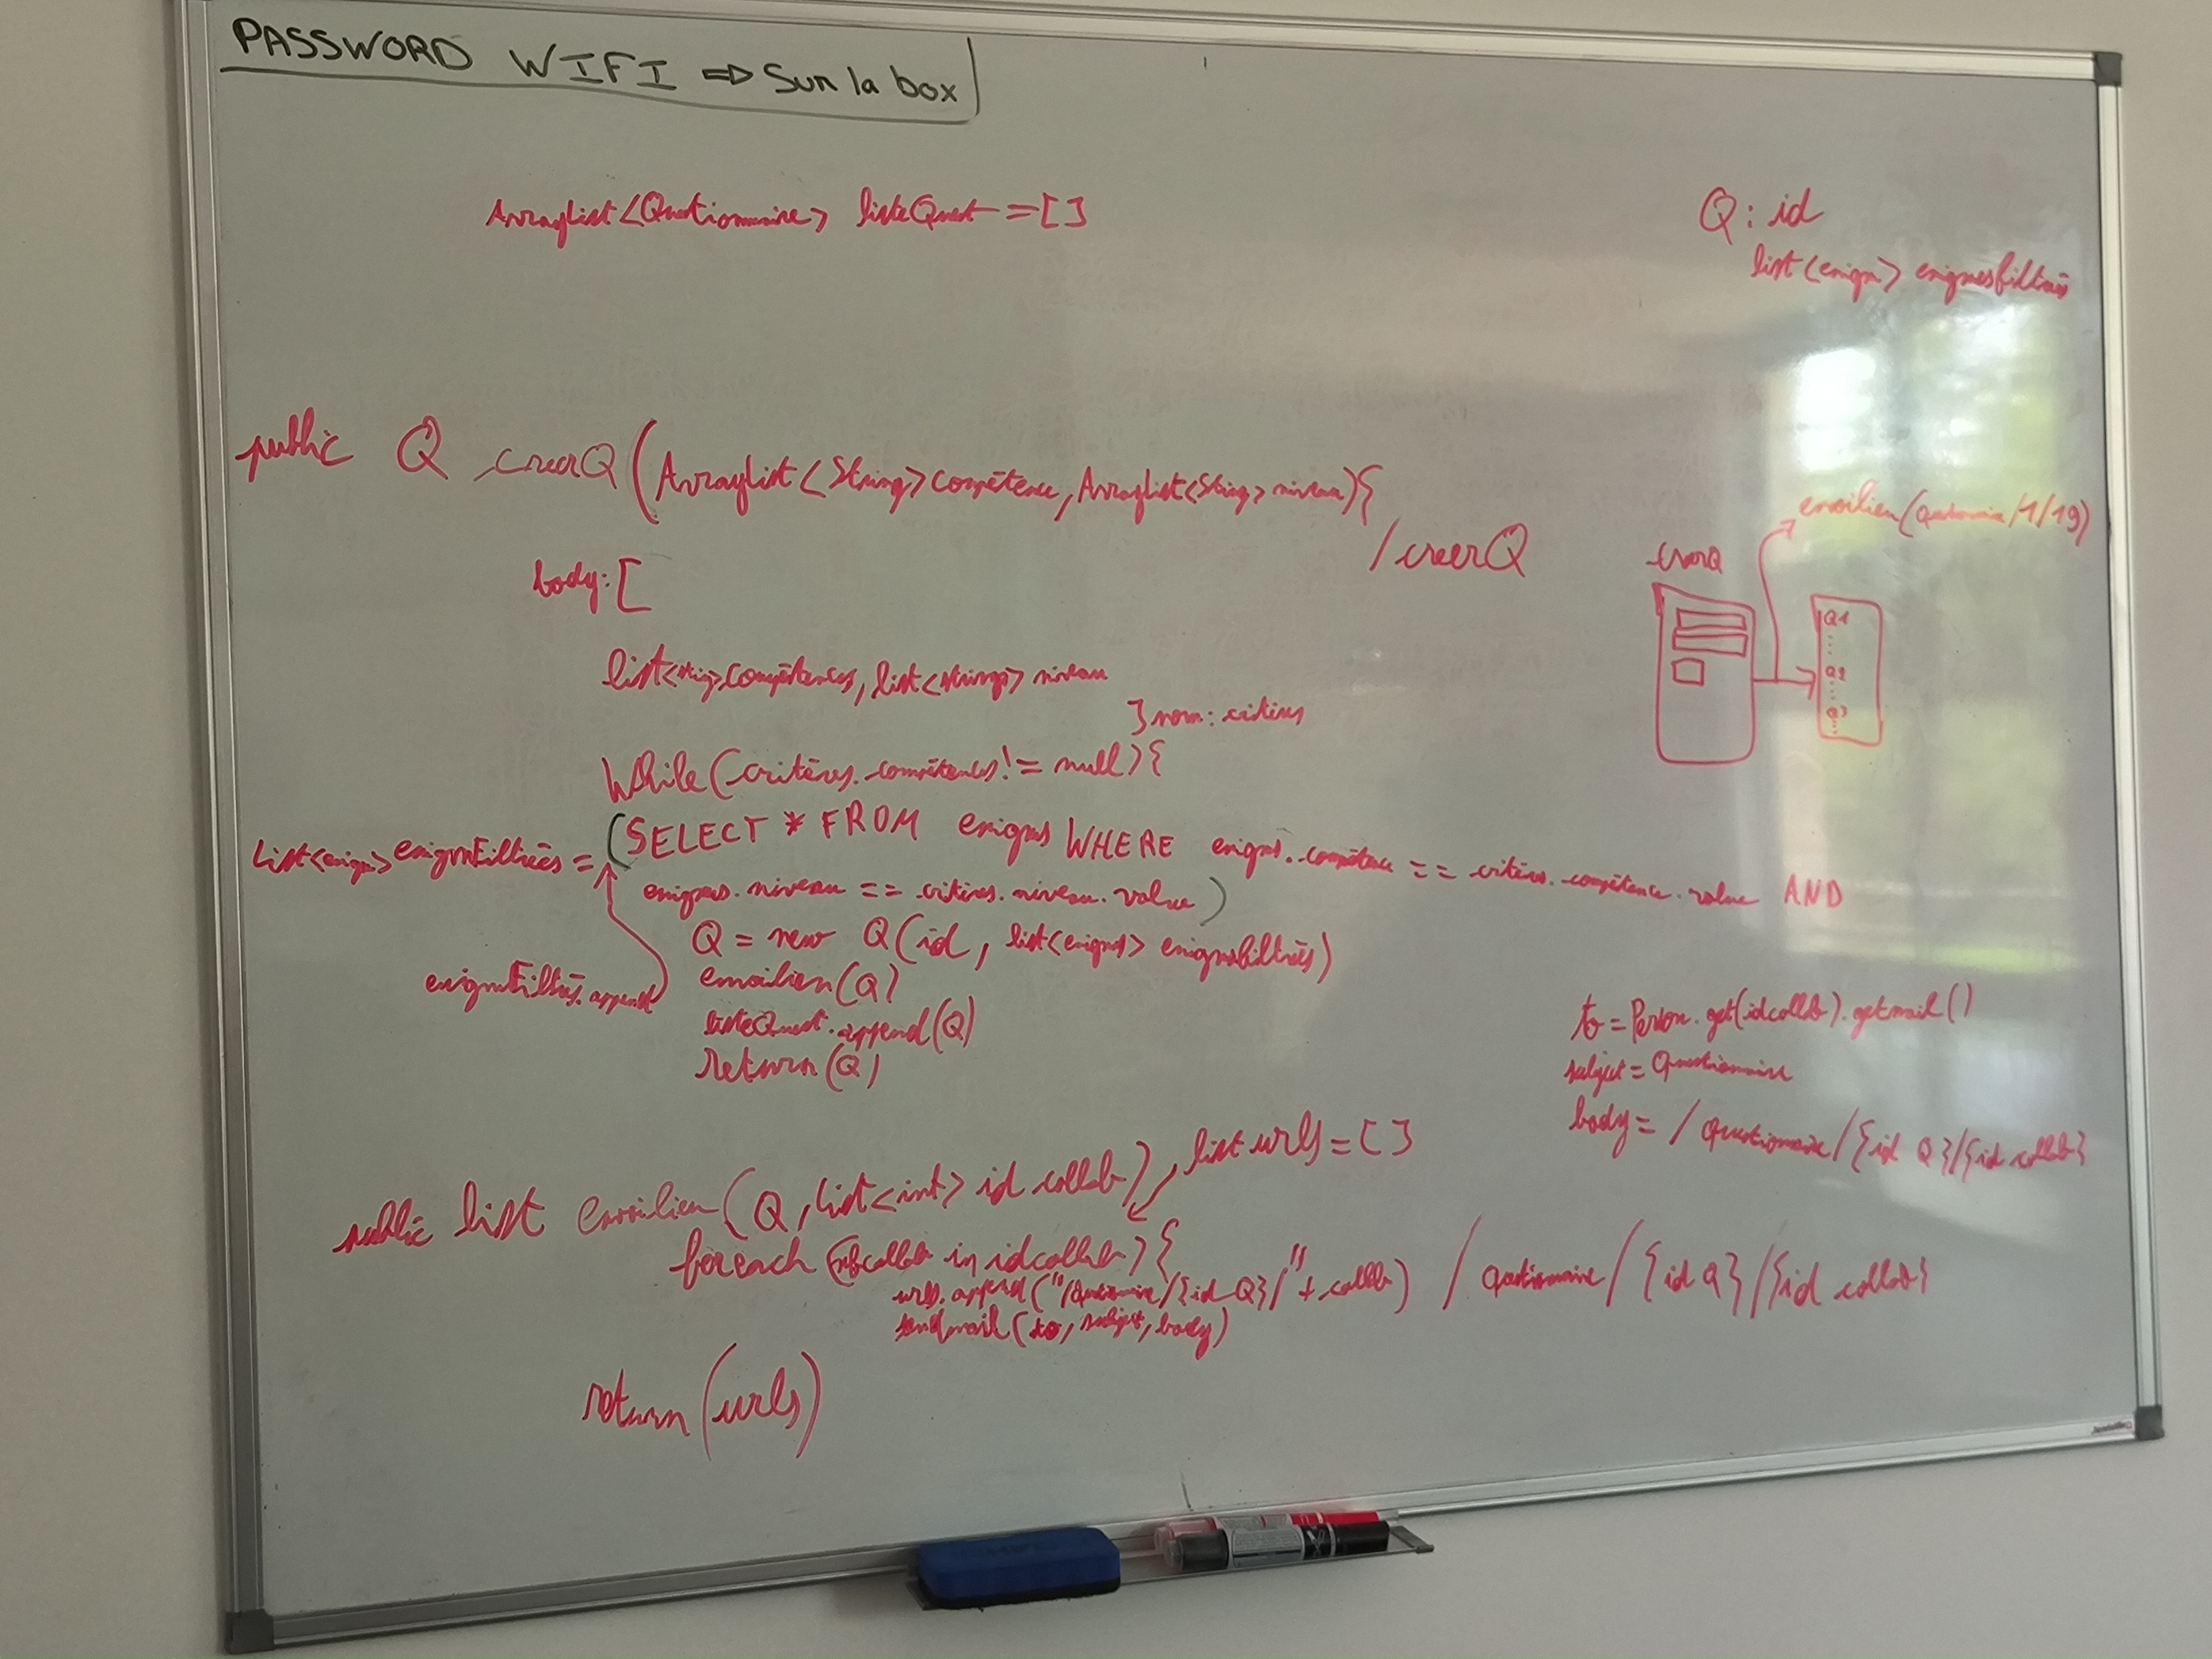 PASSWORD WIFI ⇒ Sur la box
ArrayList<Questionnaire> listeQuest = []
Q : id
list<enigm> enigmesfiltrés
public Q creerQ (ArrayList<String> compétence, ArrayList<String> niveau){
/creerQ
body: [
list<string> compétences, list<strings> niveau
] nom: critères
While(critères.compétences != null){
List<enigm> enigmFiltrées = (SELECT * FROM enigms WHERE enigms.compétence == critères.compétence.value AND
enigmes.niveau == critères.niveau.value)
enigmFiltrés.append
Q = new Q(id, list<enigmes> enigmesfiltrés)
envoilien(Q)
listeQuest.append(Q)
return(Q)
creerQ
envoilien(Questionnaire/1/19)
Q1
Q2
Q3
to = Person.get(idcollab).getmail()
subject = Questionnaire
body = /questionnaire/{id Q}/{id collab}
public list envoilien(Q, list<int> id collab), list urls = []
foreach ( in idcollab){
urls.append("/Questionnaire/{id Q}/" + collab)
sendmail(to, subject, body)
/questionnaire/{id Q}/{id collab}
return(urls)